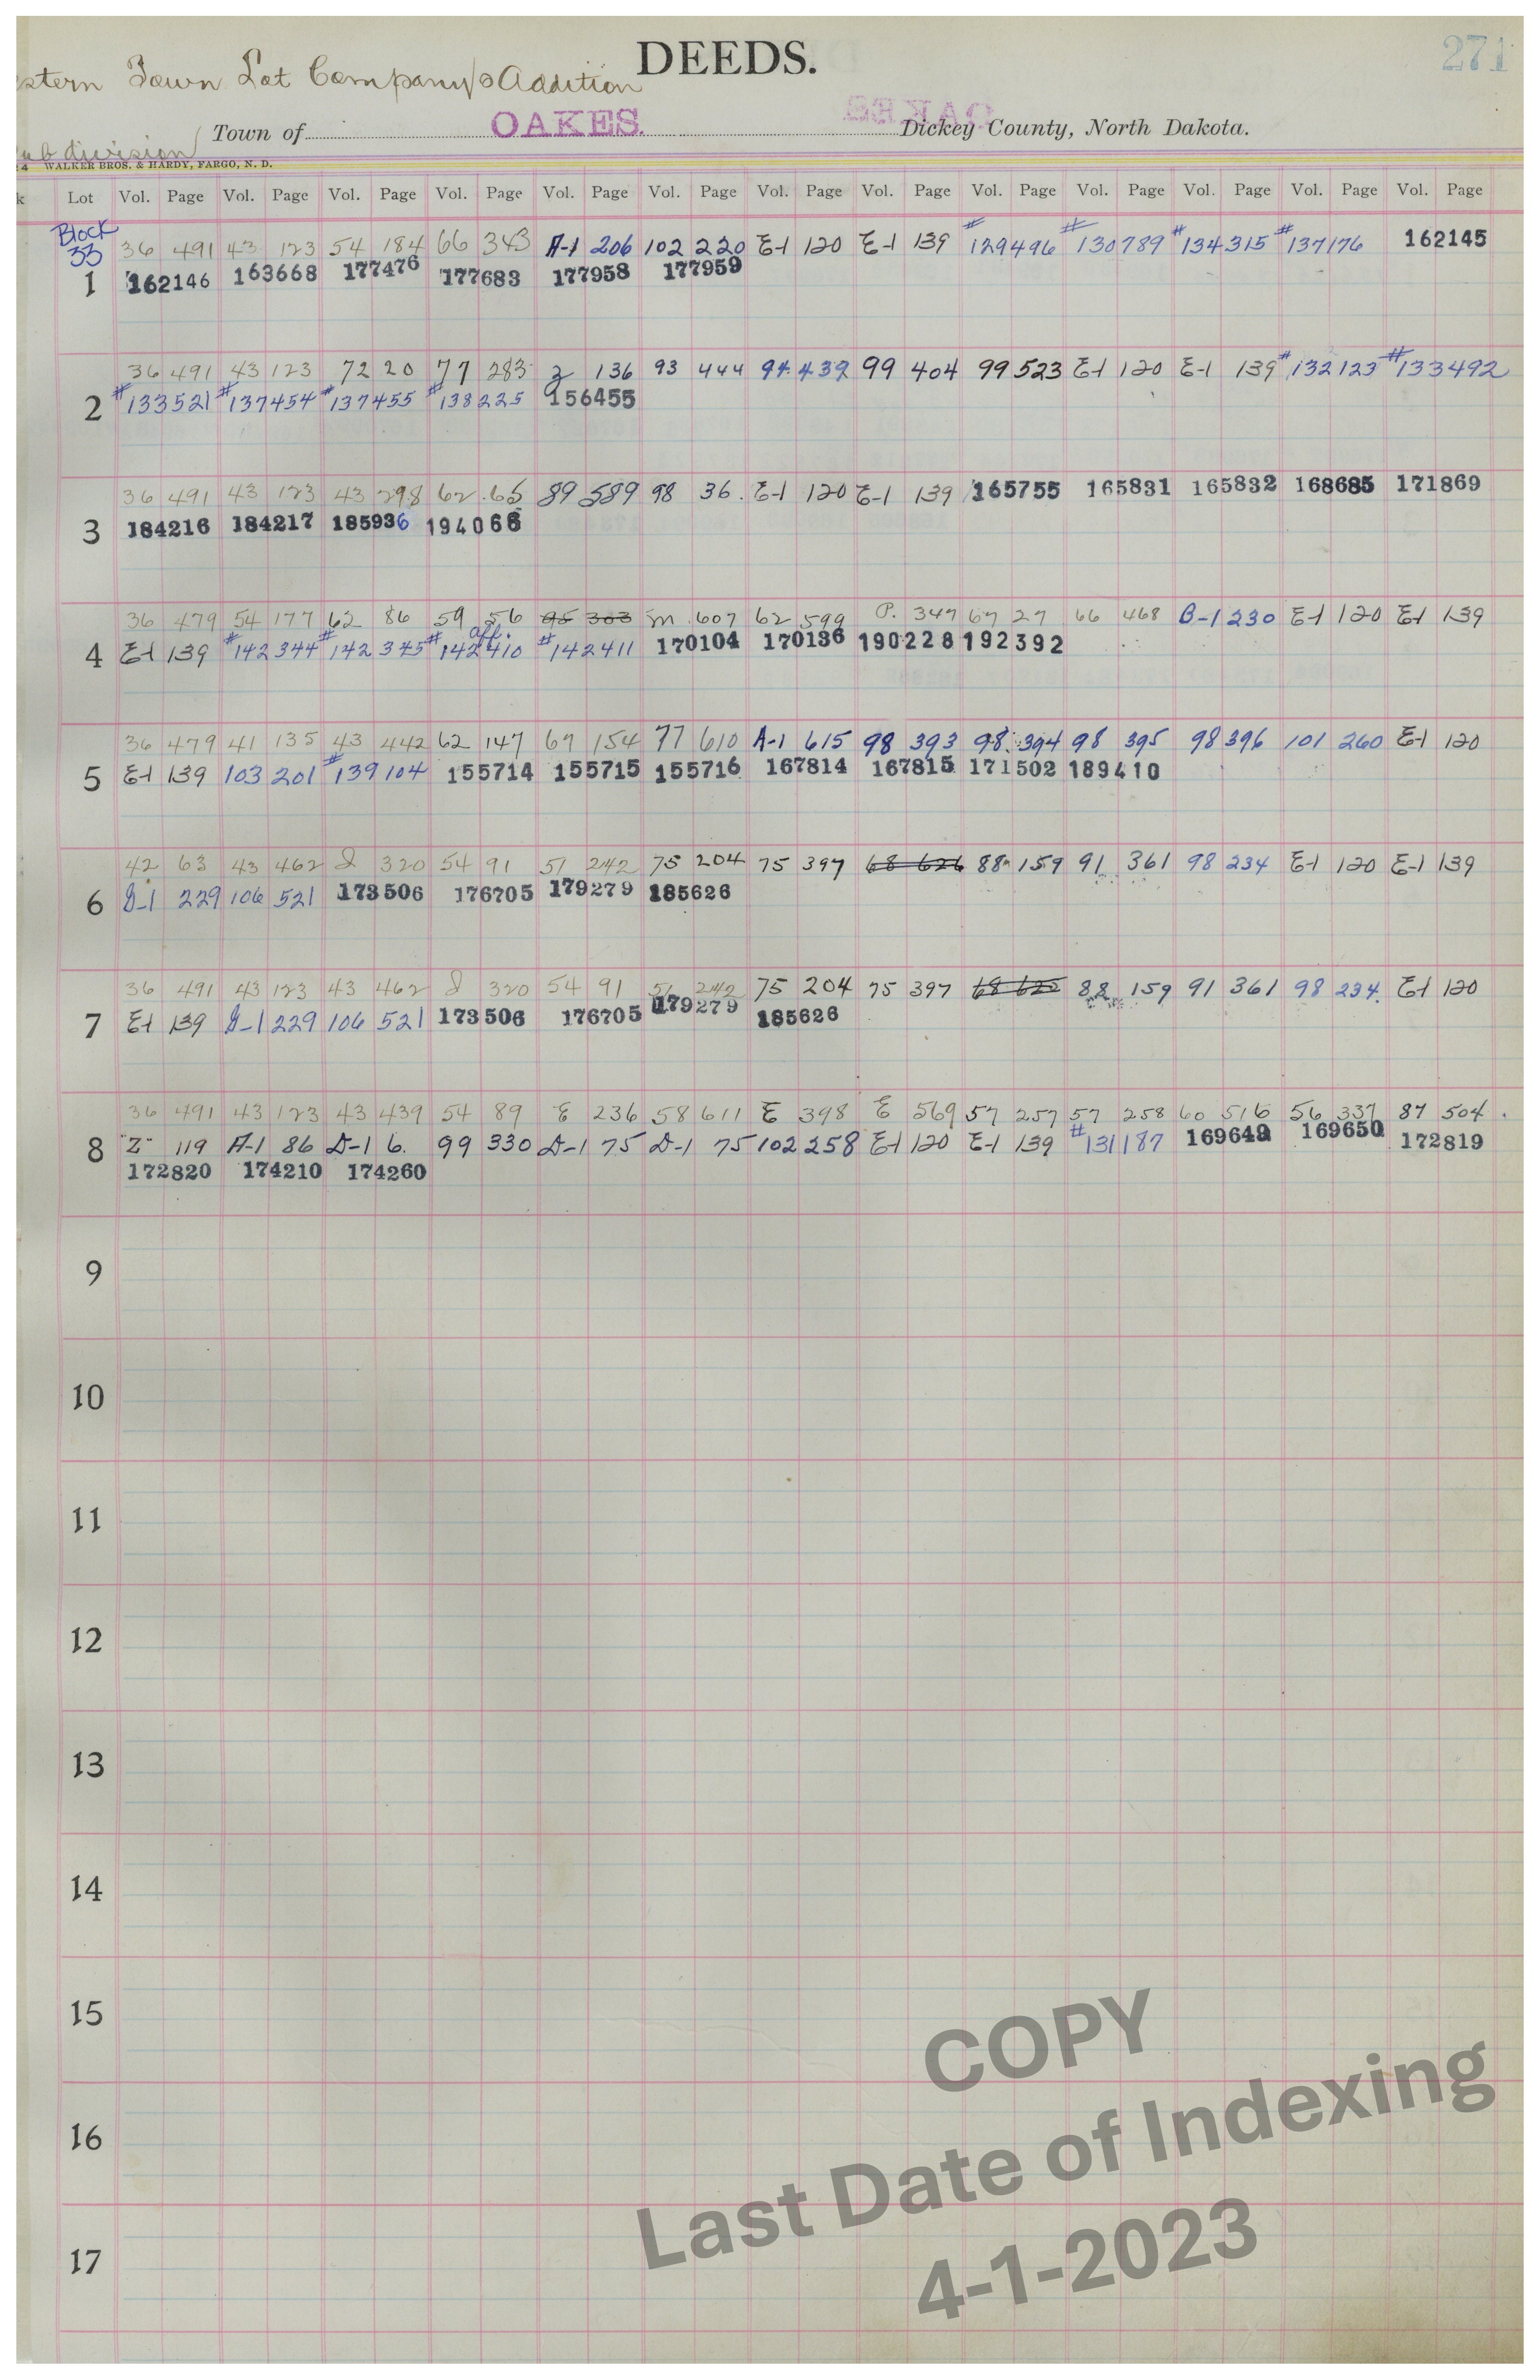 DEEDS.
271
stern Town Lot Company's Addition
Town of OAKES. Dickey County, North Dakota.
ub division
4 WALKER BROS. & HARDY, FARGO, N. D.
k Lot Vol. Page Vol. Page Vol. Page Vol. Page Vol. Page Vol. Page Vol. Page Vol. Page Vol. Page Vol. Page Vol. Page Vol. Page Vol. Page
Block
33 36 491 43 123 54 184 66 343 A-1 206 102 220 E-1 120 E-1 139 #129496 #130789 #134315 #137176 162145
1 162146 163668 177476 177683 177958 177959
36 491 43 123 72 20 77 283 136 93 444 94 439 99 404 99 523 E-1 120 E-1 139 #132123 #133492
2 #133521 #137454 #137455 #138225 156455
36 491 43 123 43 298 62 65 89 589 98 36 E-1 120 E-1 139 165755 165831 165832 168685 171869
3 184216 184217 185936 194066
36 479 54 177 62 86 59 56 95 303 M 607 62 599 P. 347 67 27 66 468 B-1 230 E-1 120 E-1 139
4 E-1 139 #142344 #142345 #142410 aff. #142411 170104 170136 190228 192392
36 479 41 135 43 442 62 147 67 154 77 610 A-1 615 98 393 98 394 98 395 98 396 101 260 E-1 120
5 E-1 139 103 201 #139104 155714 155715 155716 167814 167815 171502 189410
42 63 43 462 320 54 91 51 242 75 204 75 397 68 626 88 159 91 361 98 234 E-1 120 E-1 139
6 229 106 521 173506 176705 179279 185626
36 491 43 123 43 462 320 54 91 51 242 75 204 75 397 68 625 88 159 91 361 98 234 E-1 120
7 E-1 139 229 106 521 173506 176705 179279 185626
36 491 43 123 43 439 54 89 E 236 58 611 E 398 E 569 57 257 57 258 60 516 56 337 87 504
8 "Z" 119 A-1 86 D-1 6. 99 330 D-1 75 D-1 75 102 258 E-1 120 E-1 139 #131187 169649 169650 172819
172820 174210 174260
9
10
11
12
13
14
15
16
17
COPY
Last Date of Indexing
4-1-2023